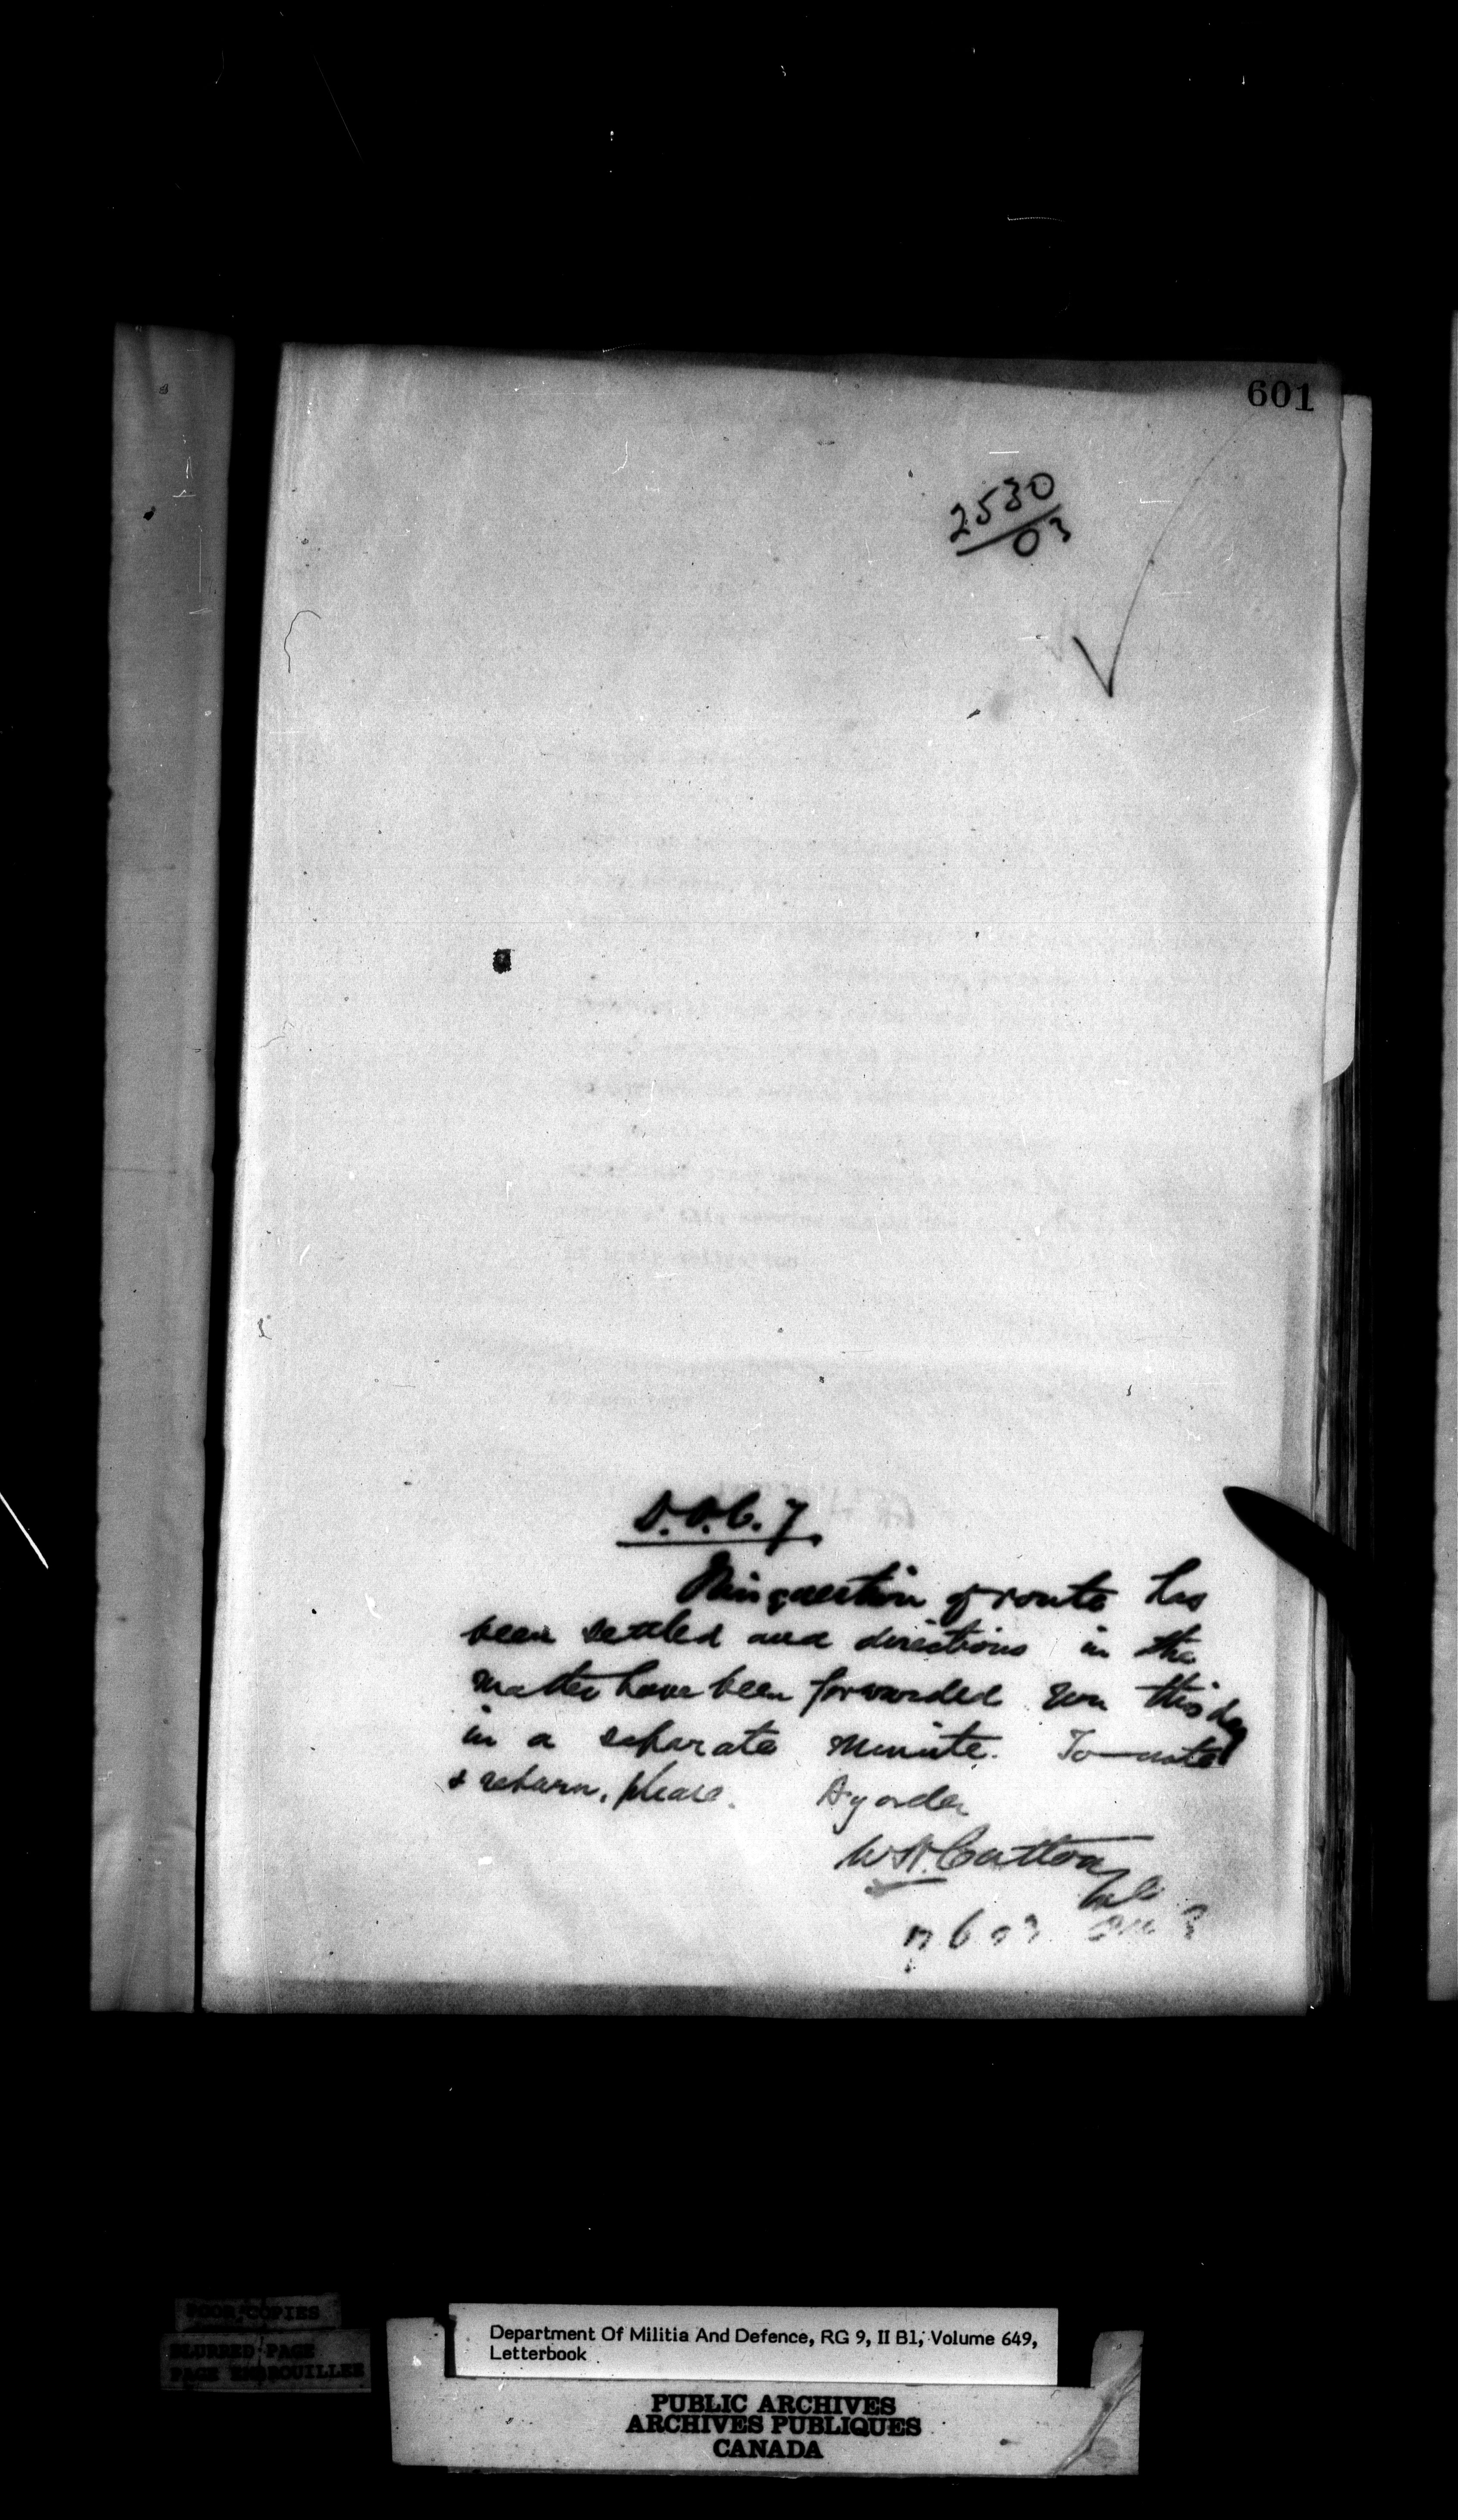 601
2530
03
D.O.C. 7
This question of route has
been settled and directions in the
matter have been forwarded you this day
in a separate minute. To note
& return, please. By order
W.H. Cotton
6 03
POOR COPIES
BLURRED PAGE
PAGE EMBROUILLEE
Department Of Militia And Defence, RG 9, II B1, Volume 649,
Letterbook
PUBLIC ARCHIVES
ARCHIVES PUBLIQUES
CANADA